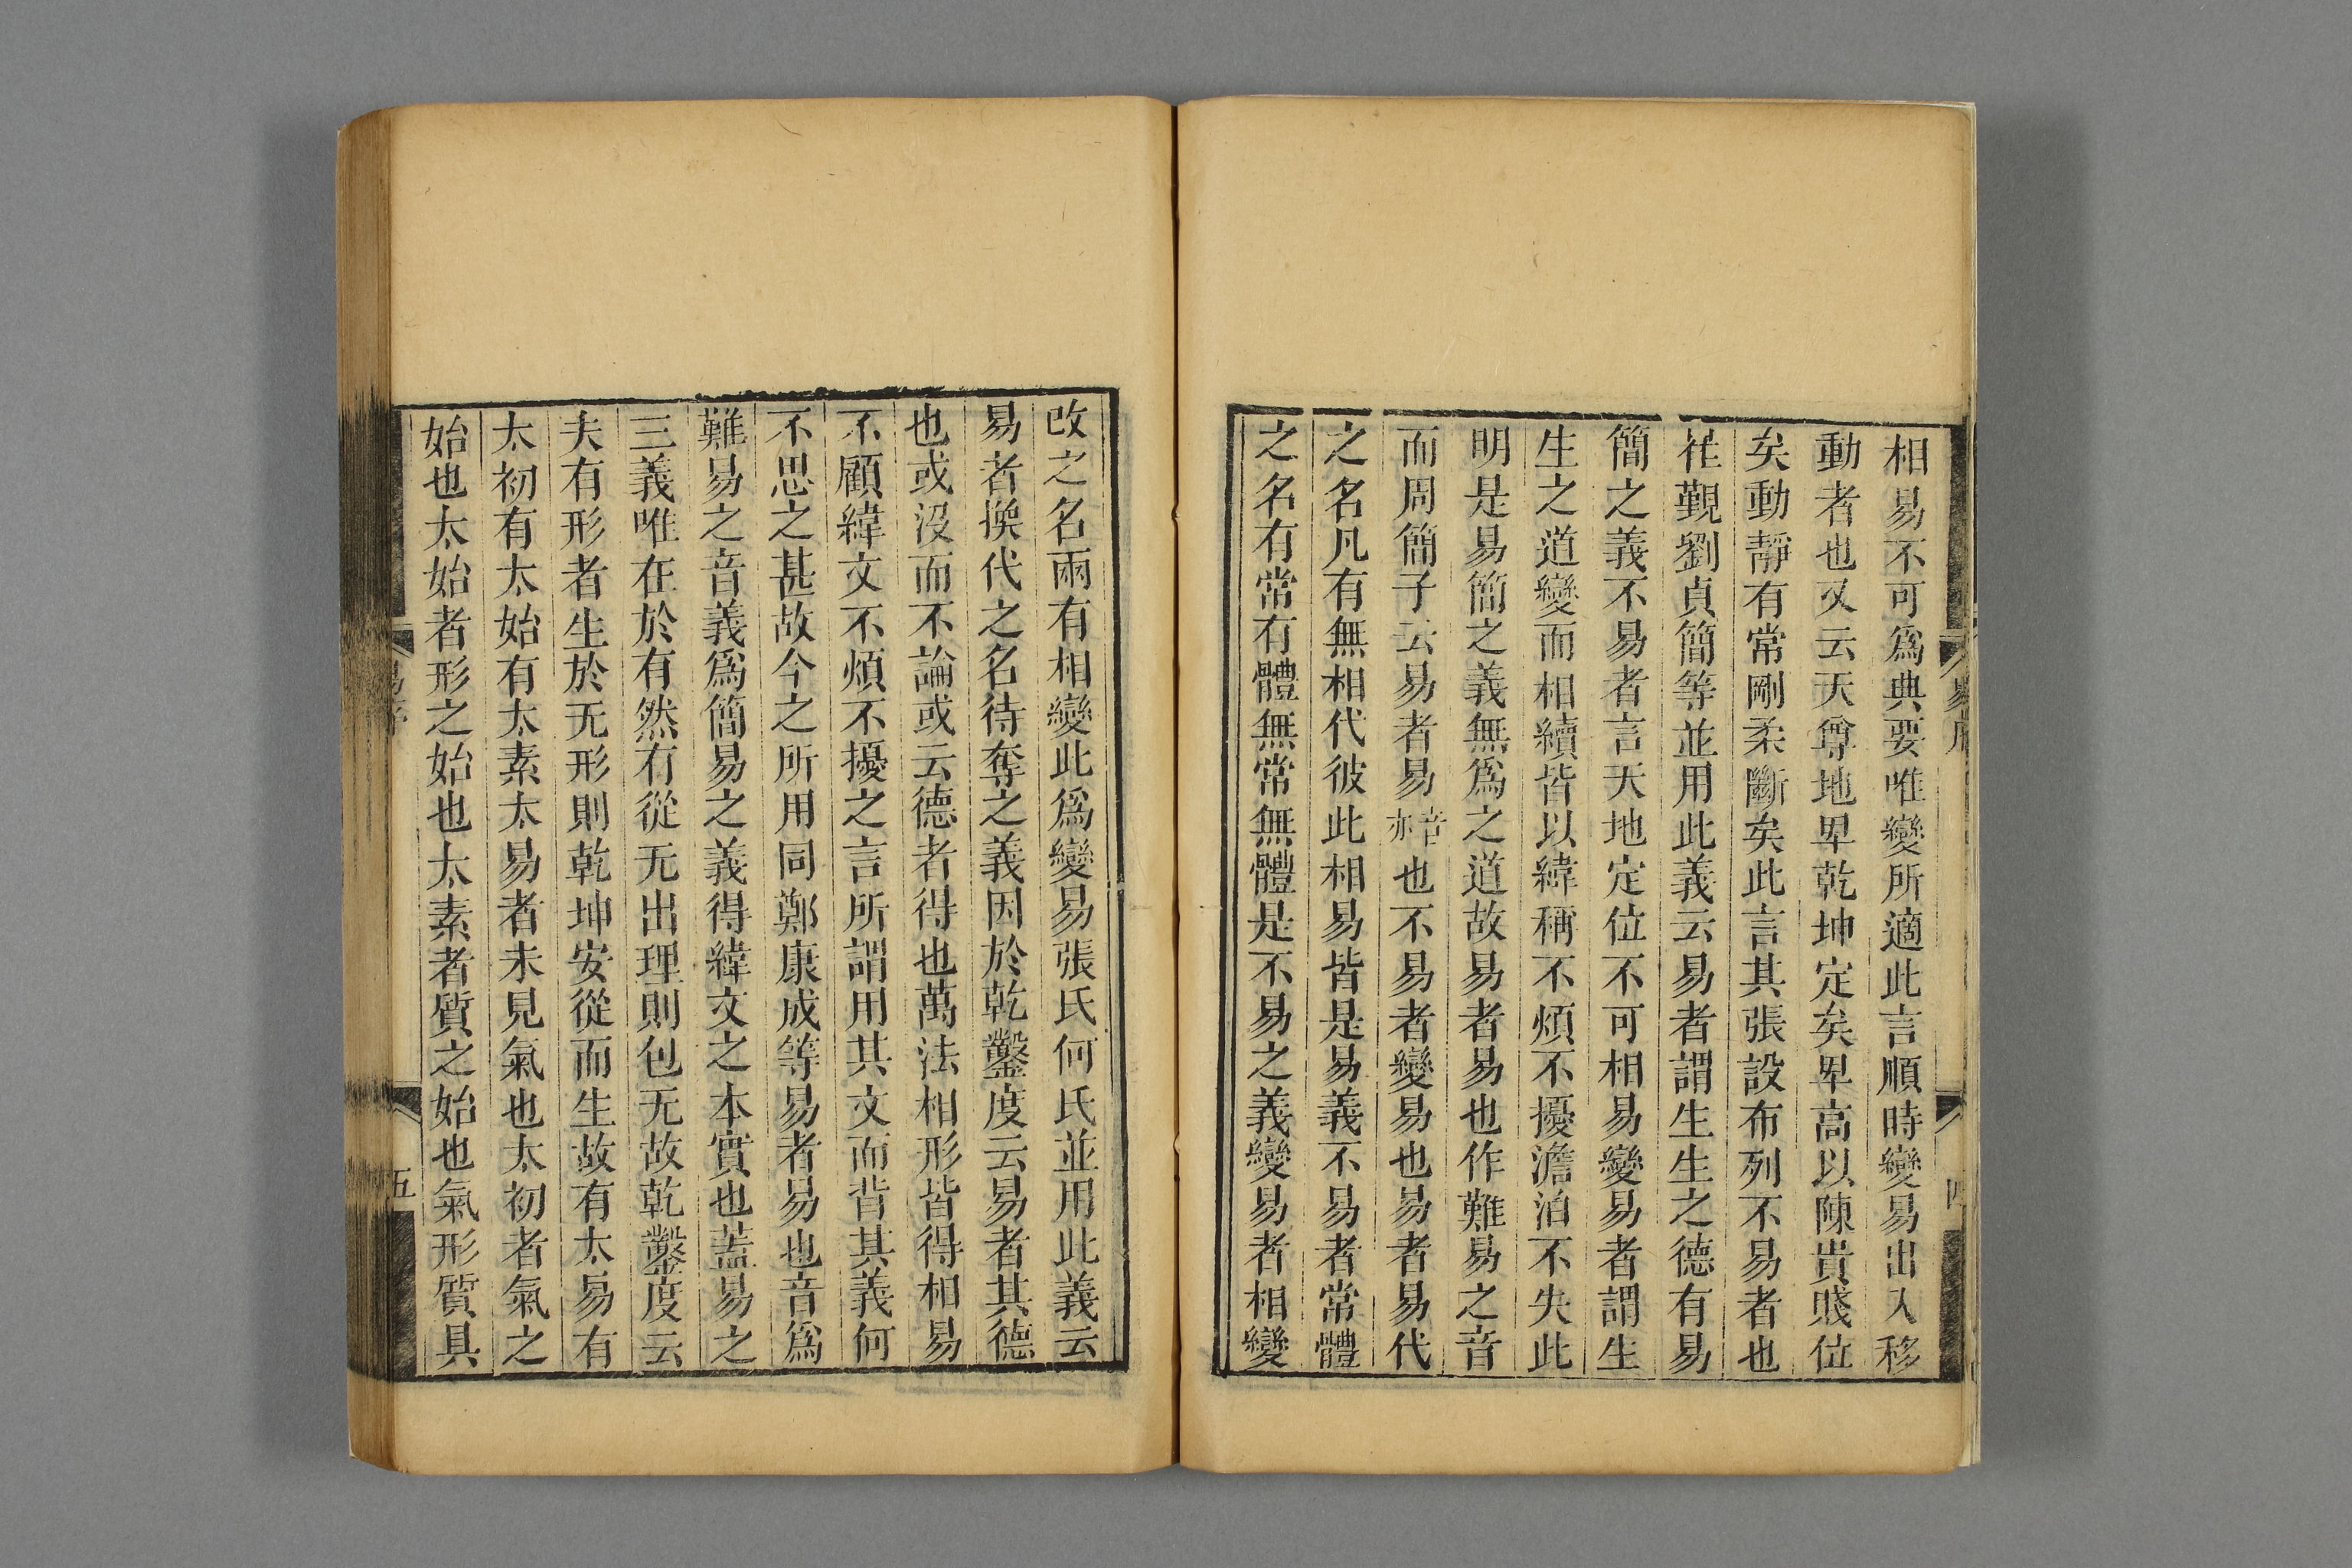 相易不可爲典要唯變所適此言順時變易出入移
動者也又云天尊地卑乾坤定矣卑高以陳貴賤位
矣動靜有常剛柔斷矣此言其張設布列不易者也
崔覲劉貞簡等並用此義云易者謂生生之德有易
簡之義不易者言天地定位不可相易變易者謂生
生之道變而相續皆以緯稱不煩不擾澹泊不失此
明是易簡之義無爲之道故易者易也作難易之音
而周簡子云易者易音亦也不易者變易也易者易代
之名凡有無相代彼此相易皆是易義不易者常體
之名有常有體無常無體是不易之義變易者相變
改之名兩有相變此爲變易張氏何氏並用此義云
易者換代之名待奪之義因於乾鑿度云易者其德
也或沒而不論或云德者得也萬法相形皆得相易
不顧緯文不煩不擾之言所謂用其文而背其義何
不思之甚故今之所用同鄭康成等易者易也音爲
難易之音義爲簡易之義得緯文之本實也蓋易之
三義唯在於有然有從无出理則包无故乾鑿度云
夫有形者生於无形則乾坤安從而生故有太易有
太初有太始有太素太易者未見氣也太初者氣之
始也太始者形之始也太素者質之始也氣形質具
五